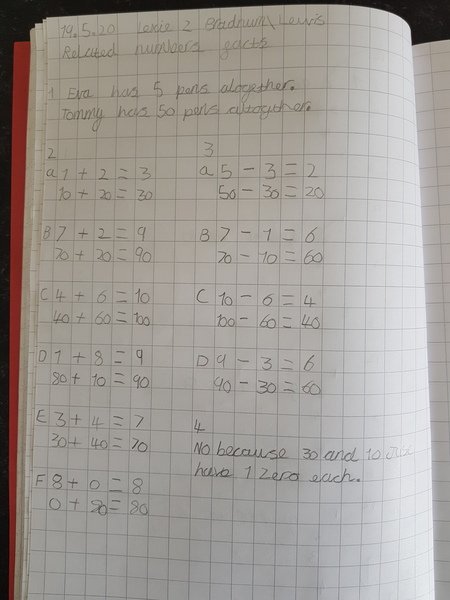 19.5.20 Lexie 2 Bradnum/Lewis
Related numbers facts
1 Eva has 5 pens altogether.
Tommy has 50 pens altogther.
2
a 1 + 2 = 3
10 + 20 = 30
B 7 + 2 = 9
70 + 20 = 90
C 4 + 6 = 10
40 + 60 = 100
D 1 + 8 = 9
80 + 10 = 90
E 3 + 4 = 7
30 + 40 = 70
F 8 + 0 = 8
0 + 80 = 80
3
a 5 - 3 = 2
50 - 30 = 20
B 7 - 1 = 6
70 - 10 = 60
C 10 - 6 = 4
100 - 60 = 40
D 9 - 3 = 6
90 - 30 = 60
4
No because 30 and 10
have 1 zero each.